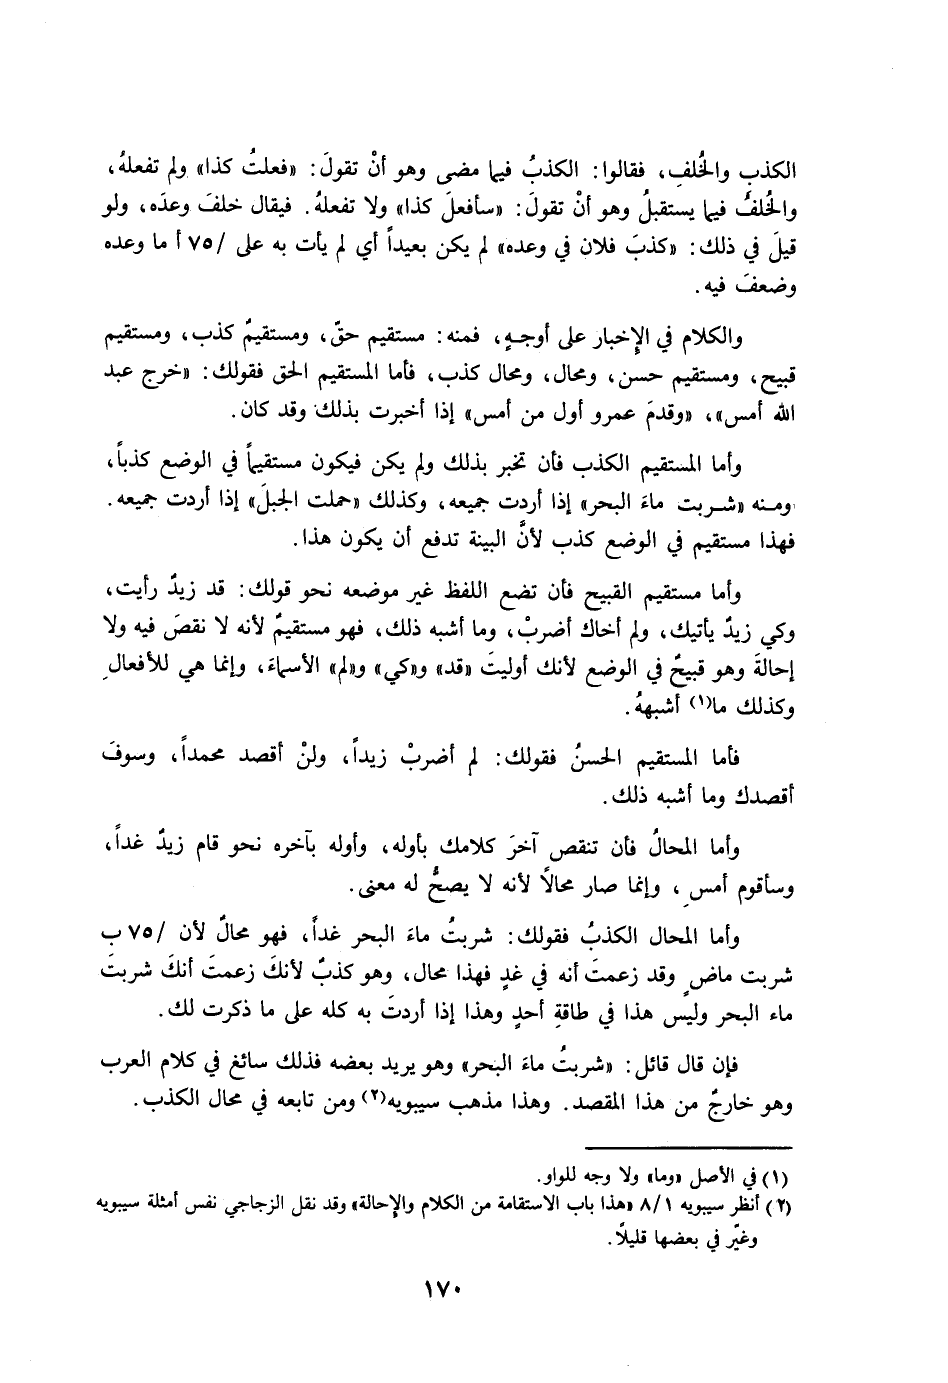 الكذب والخُلفِ، فقالوا: الكذبُ فيما مضى وهو أنْ تقولَ: «فعلتُ كذا» ولم تفعلهُ،
والخُلفُ فيما يستقبلُ وهو أنْ تقولَ: «سأفعلَ كذا» ولا تفعلهُ. فيقال خلفَ وعدَه، ولو
قيلَ في ذلك: «كذبَ فلان في وعده» لم يكن بعيداً أي لم يأت به على /٧٥ أ ما وعده
وضعفَ فيه.
والكلام في الإِخبار على أوجهٍ، فمنه: مستقيم حقّ، ومستقيمٌ كذب، ومستقيم
قبيح، ومستقيم حسن، ومحال، ومحال كذب، فأما المستقيم الحق فقولك: «خرج عبد
الله أمس»، «وقدمَ عمرو أول من أمس» إذا أخبرت بذلك وقد كان.
وأما المستقيم الكذب فأن تخبر بذلك ولم يكن فيكون مستقيماً في الوضع كذباً،
ومنه «شربت ماءَ البحر» إذا أردت جميعه، وكذلك «حملت الجبلَ» إذا أردت جميعه.
فهذا مستقيم في الوضع كذب لأنَّ البينة تدفع أن يكون هذا.
وأما مستقيم القبيح فأن تضع اللفظ غير موضعه نحو قولك: قد زيدٌ رأيت،
وكي زيدٌ يأتيك، ولم أخاك أضربْ، وما أشبه ذلك، فهو مستقيمٌ لأنه لا نقصَ فيه ولا
إحالةَ وهو قبيحٌ في الوضع لأنك أوليتَ «قد» و«كي» و«لم» الأسماءَ، وإنما هي للأفعالِ
وكذلك ما(١) أشبههُ.
فأما المستقيم الحسنُ فقولك: لم أضربْ زيداً، ولنْ أقصد محمداً، وسوفَ
أقصدك وما أشبه ذلك.
وأما المحالُ فأن تنقص آخرَ كلامك بأوله، وأوله بآخره نحو قام زيدٌ غداً،
وسأقوم أمسِ، وإنما صار محالاً لأنه لا يصحُّ له معنى.
وأما المحال الكذبُ فقولك: شربتُ ماءَ البحر غداً، فهو محالٌ لأن /٧٥ ب
شربت ماضٍ وقد زعمتَ أنه في غدٍ فهذا محال، وهو كذبٌ لأنكَ زعمتَ أنكَ شربتَ
ماء البحر وليس هذا في طاقةِ أحدٍ وهذا إذا أردتَ به كله على ما ذكرت لك.
فإن قال قائل: «شربتُ ماءَ البحر» وهو يريد بعضه فذلك سائغ في كلام العرب
وهو خارجٌ من هذا المقصد. وهذا مذهب سيبويه(٢) ومن تابعه في محال الكذب.
(١) في الأصل «وما» ولا وجه للواو.
(٢) أنظر سيبويه ٨/١ «هذا باب الاستقامة من الكلام والإِحالة» وقد نقل الزجاجي نفس أمثلة سيبويه
وغيّر في بعضها قليلاً.
١٧٠